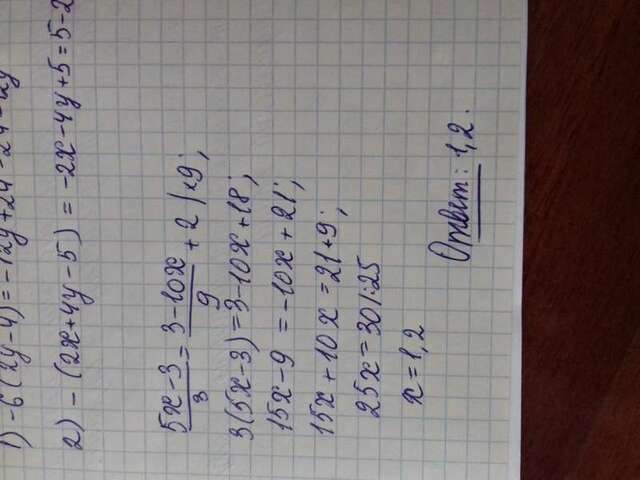 1) -6(2y-4)=-12y+24=24-12y
2) -(2x+4y-5) = -2x-4y+5=5-2
5x-3/3 = 3-10x/9 + 2 | ×9;
3(5x-3)=3-10x+18;
15x-9 = -10x+21;
15x+10x=21+9;
25x=30 |:25
x=1,2
Ответ: 1,2.